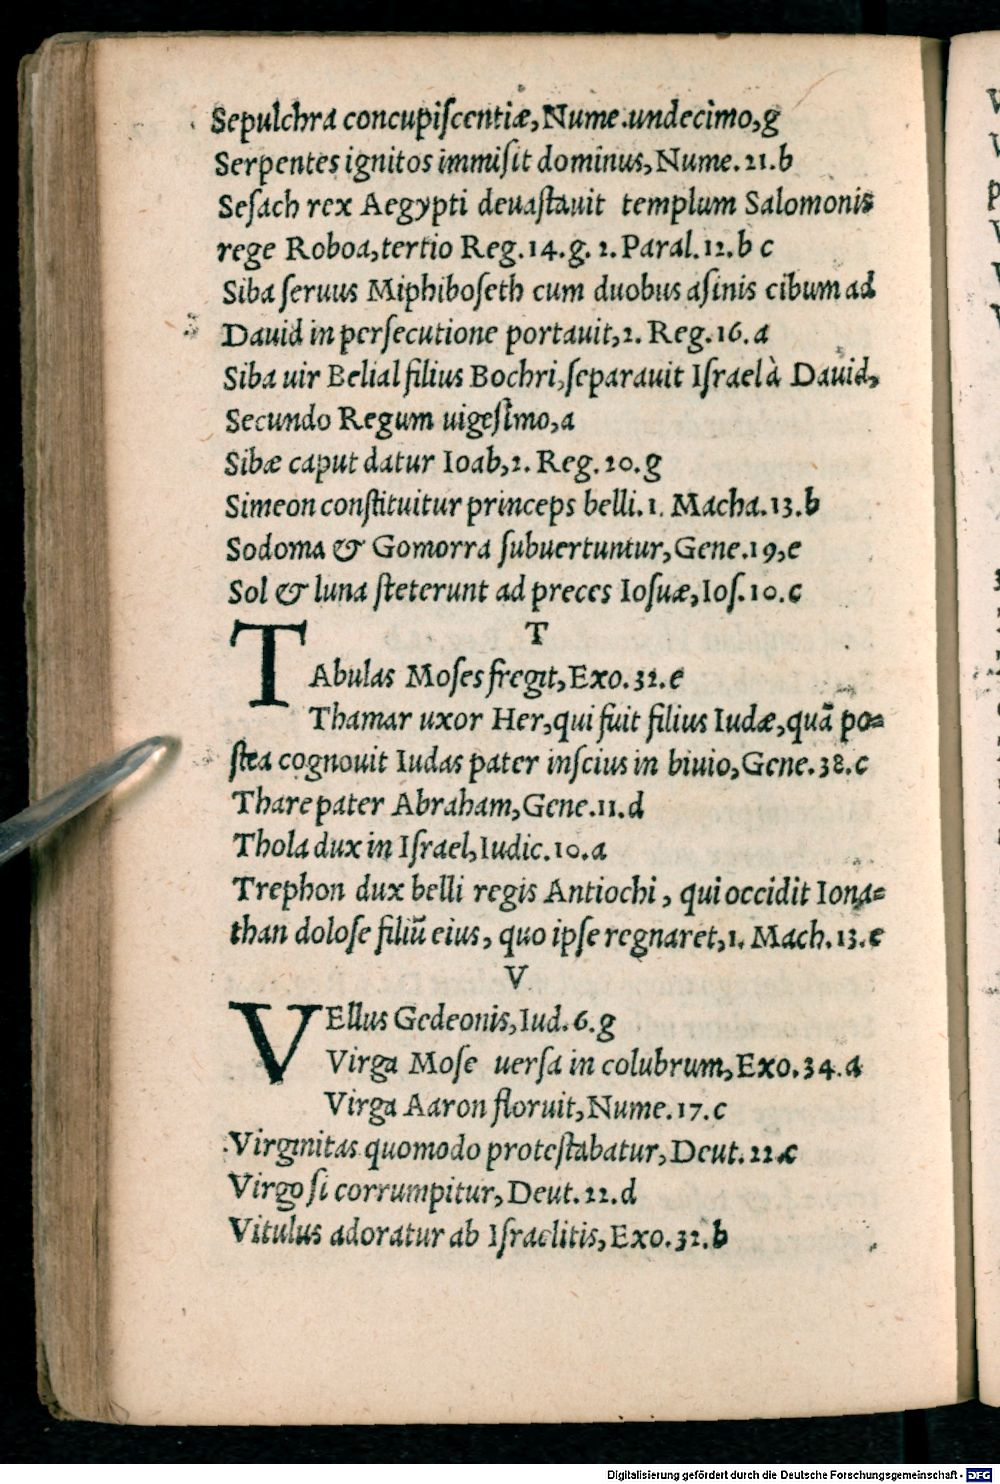 Sepulchra concupiſcentiæ, Nume.undecimo,g
Serpentes ignitos immiſit dominus, Nume.21.b
Seſach rex Aegypti deuaſtauit templum Salomonis
rege Roboa,tertio Reg.14.g. 2. Paral.12.b c
Siba ſeruus Miphiboſeth cum duobus aſinis cibum ad
Dauid in perſecutione portauit,2. Reg.16.a
Siba uir Belial filius Bochri,ſeparauit Iſrael à Dauid,
Secundo Regum uigeſimo,a
Sibæ caput datur Ioab,2. Reg.20.g
Simeon conſtituitur princeps belli.1. Macha.13.b
Sodoma & Gomorra ſubuertuntur,Gene.19,e
Sol & luna ſteterunt ad preces Ioſuæ,Ioſ.10.c
T
TAbulas Moſes fregit,Exo.32.e
Thamar uxor Her,qui fuit filius Iudæ,quã po=
ſtea cognouit Iudas pater inſcius in biuio,Gene.38.c
Thare pater Abraham,Gene.11.d
Thola dux in Iſrael,Iudic.10.a
Trephon dux belli regis Antiochi, qui occidit Iona=
than doloſe filiũ eius, quo ipſe regnaret,1. Mach.13.e
V
VEllus Gedeonis,Iud.6.g
Virga Moſe uerſa in colubrum,Exo.34.a
Virga Aaron floruit,Nume.17.c
Virginitas quomodo proteſtabatur,Deut.22.c
Virgo ſi corrumpitur,Deut.22.d
Vitulus adoratur ab Iſraelitis,Exo.32.b
Digitalisierung gefördert durch die Deutsche Forschungsgemeinschaft - DFG